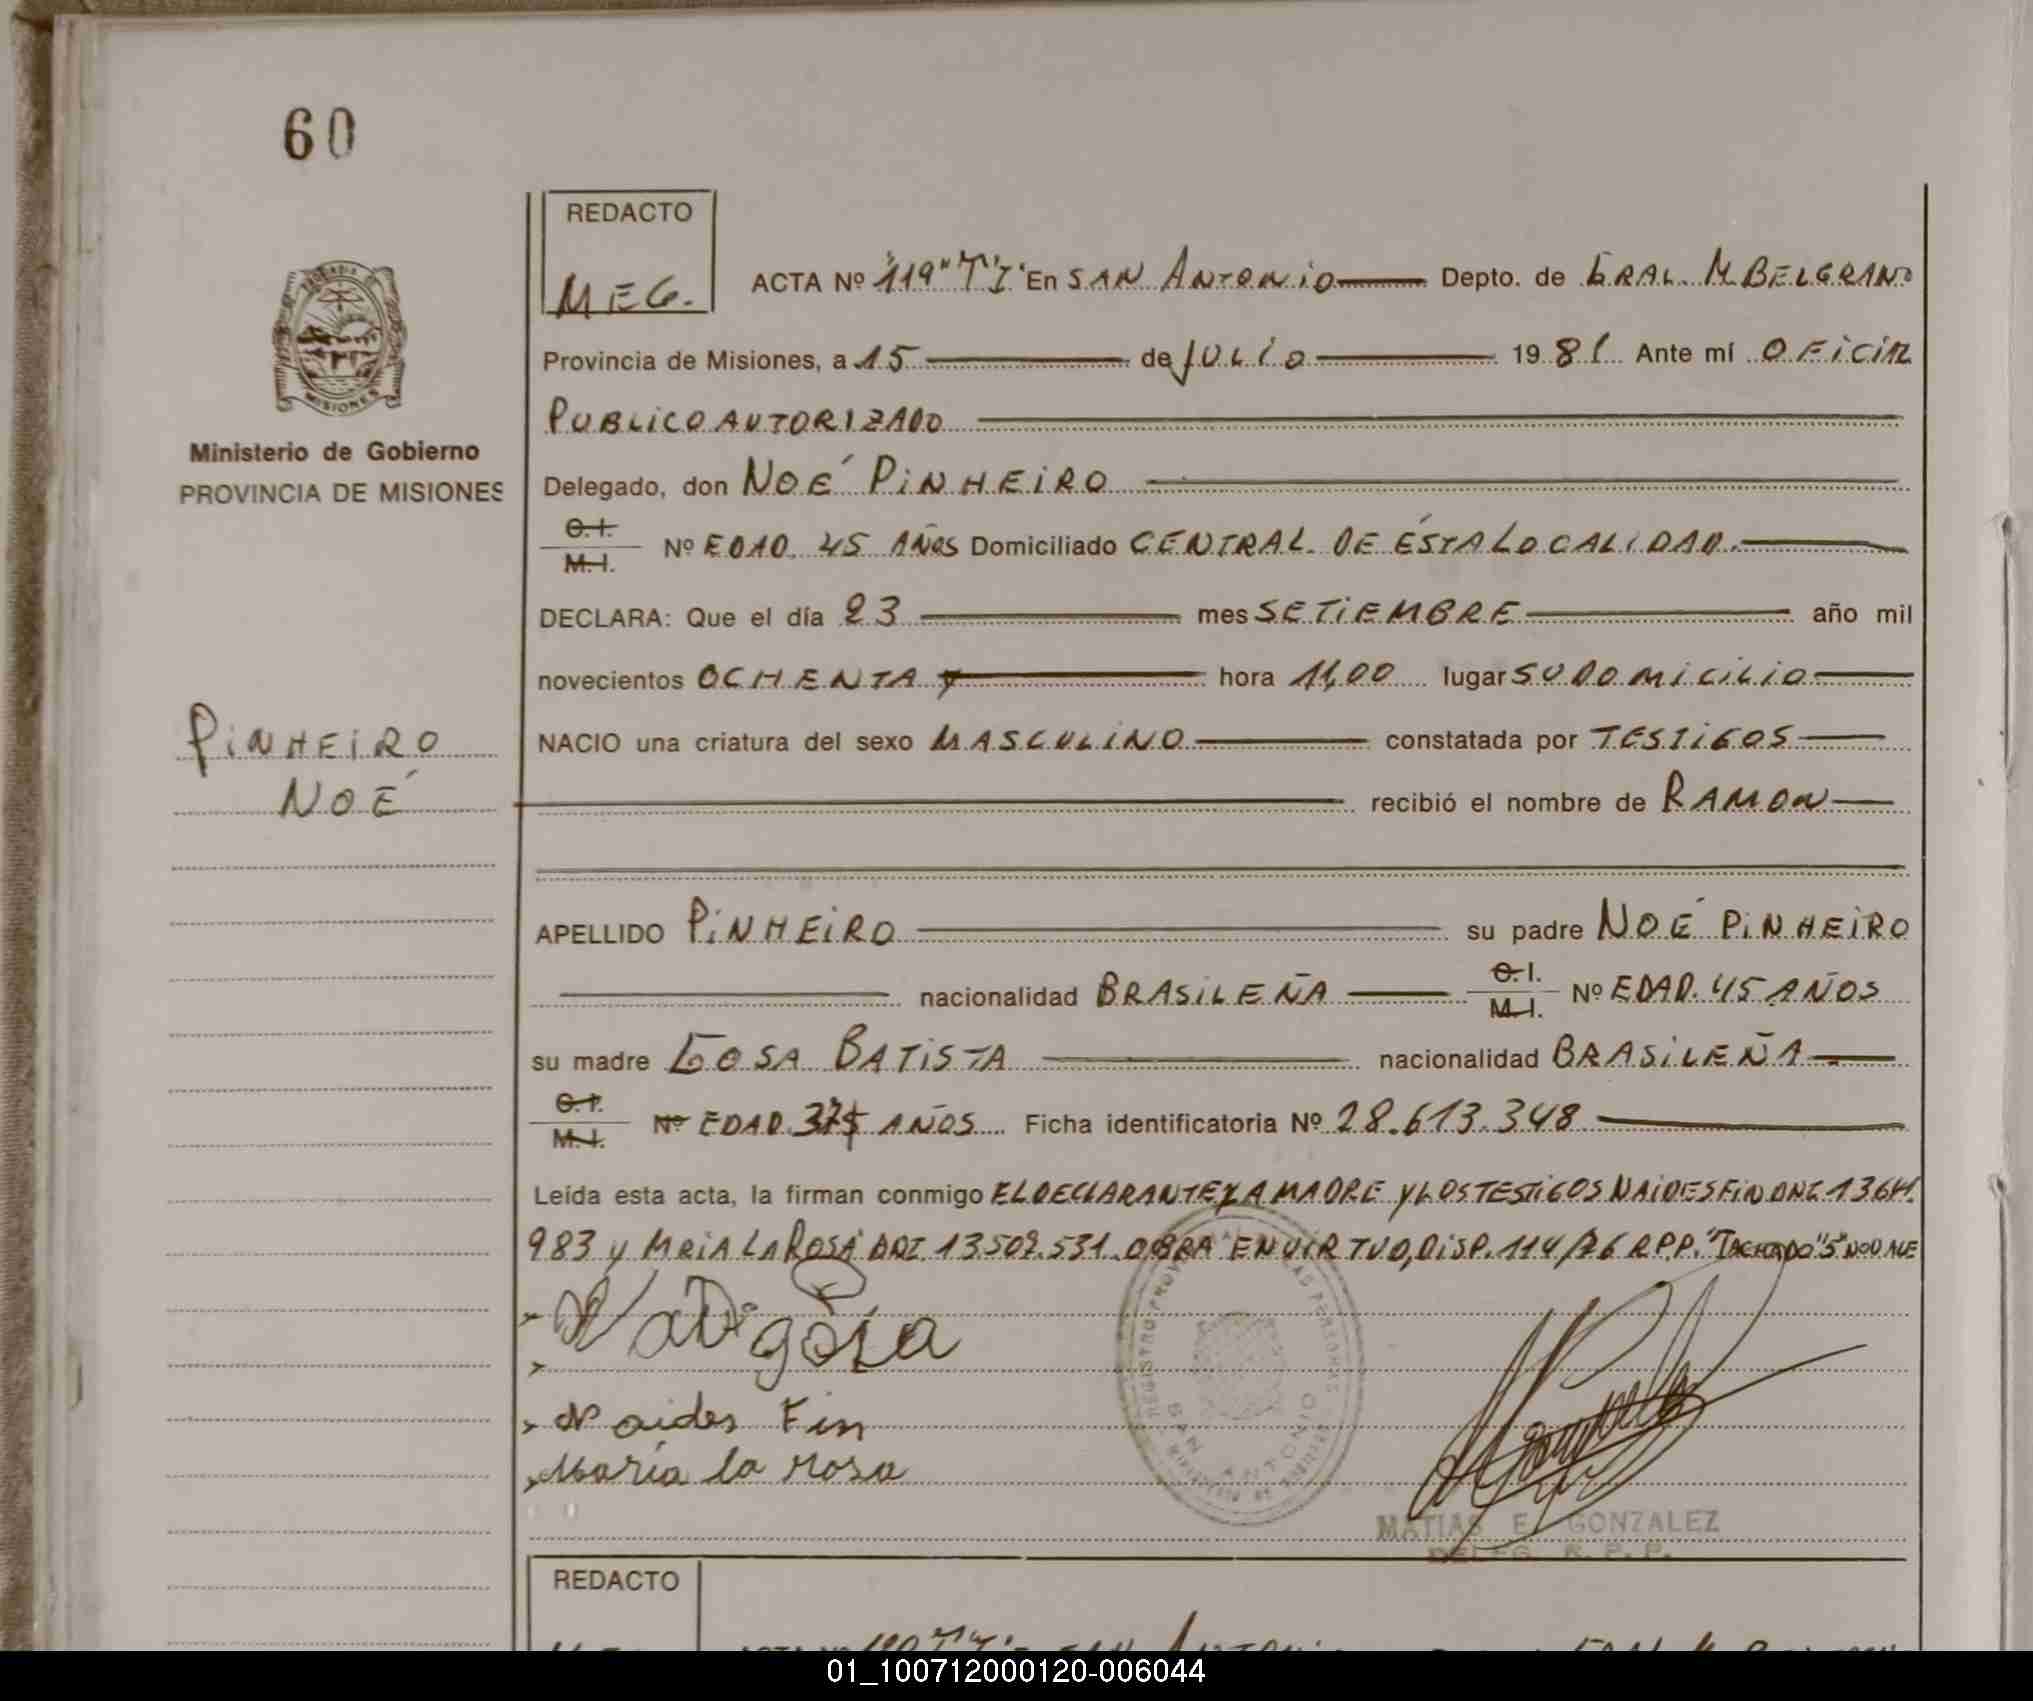 60
REDACTO
MEG.
ACTA Nº "119" "T"I" En SAN ANTONIO Depto. de GRAL. M. BELGRANO
Provincia de Misiones, a 15 de JULIO 1981 Ante mí OFICIAL
PUBLICO AUTORIZADO
Delegado, don NOÉ PiNHEiRO
C.I.
M.I. Nº EDAD. 45 AÑOS Domiciliado CENTRAL DE ÉSTA LOCALIDAD.
DECLARA: Que el día 23 mes SETIEMBRE año mil
novecientos OCHENTA y hora 11,00 lugar SU DOMICILIO
NACIO una criatura del sexo MASCULINO constatada por TESTIGOS
recibió el nombre de RAMON
APELLIDO PiNHEiRO su padre NOÉ PiNHEiRO
nacionalidad BRASILEÑA C.I.
M.I. Nº EDAD. 45 AÑOS
su madre BATISTA nacionalidad BRASILEÑA
C.I.
M.I. Nº EDAD AÑOS Ficha identificatoria Nº 28.613.348
Leída esta acta, la firman conmigo EL DECLARANTE LA MADRE Y LOS TESTIGOS NAIDES FIN DNI.
983 y MRIA LA ROSA DNI. 13.509.531. OBRA EN VIRTUD, DISP. 114/76 R.P.P. "TACHADO" "5" NO VALE
Naides Fin
María la rosa
MATIAS E. GONZALEZ
DELEG. R. P. P.
Ministerio de Gobierno
PROVINCIA DE MISIONES
PiNHEiRO
NOÉ
MISIONES
SAN ANTONIO
REDACTO
01_100712000120-006044